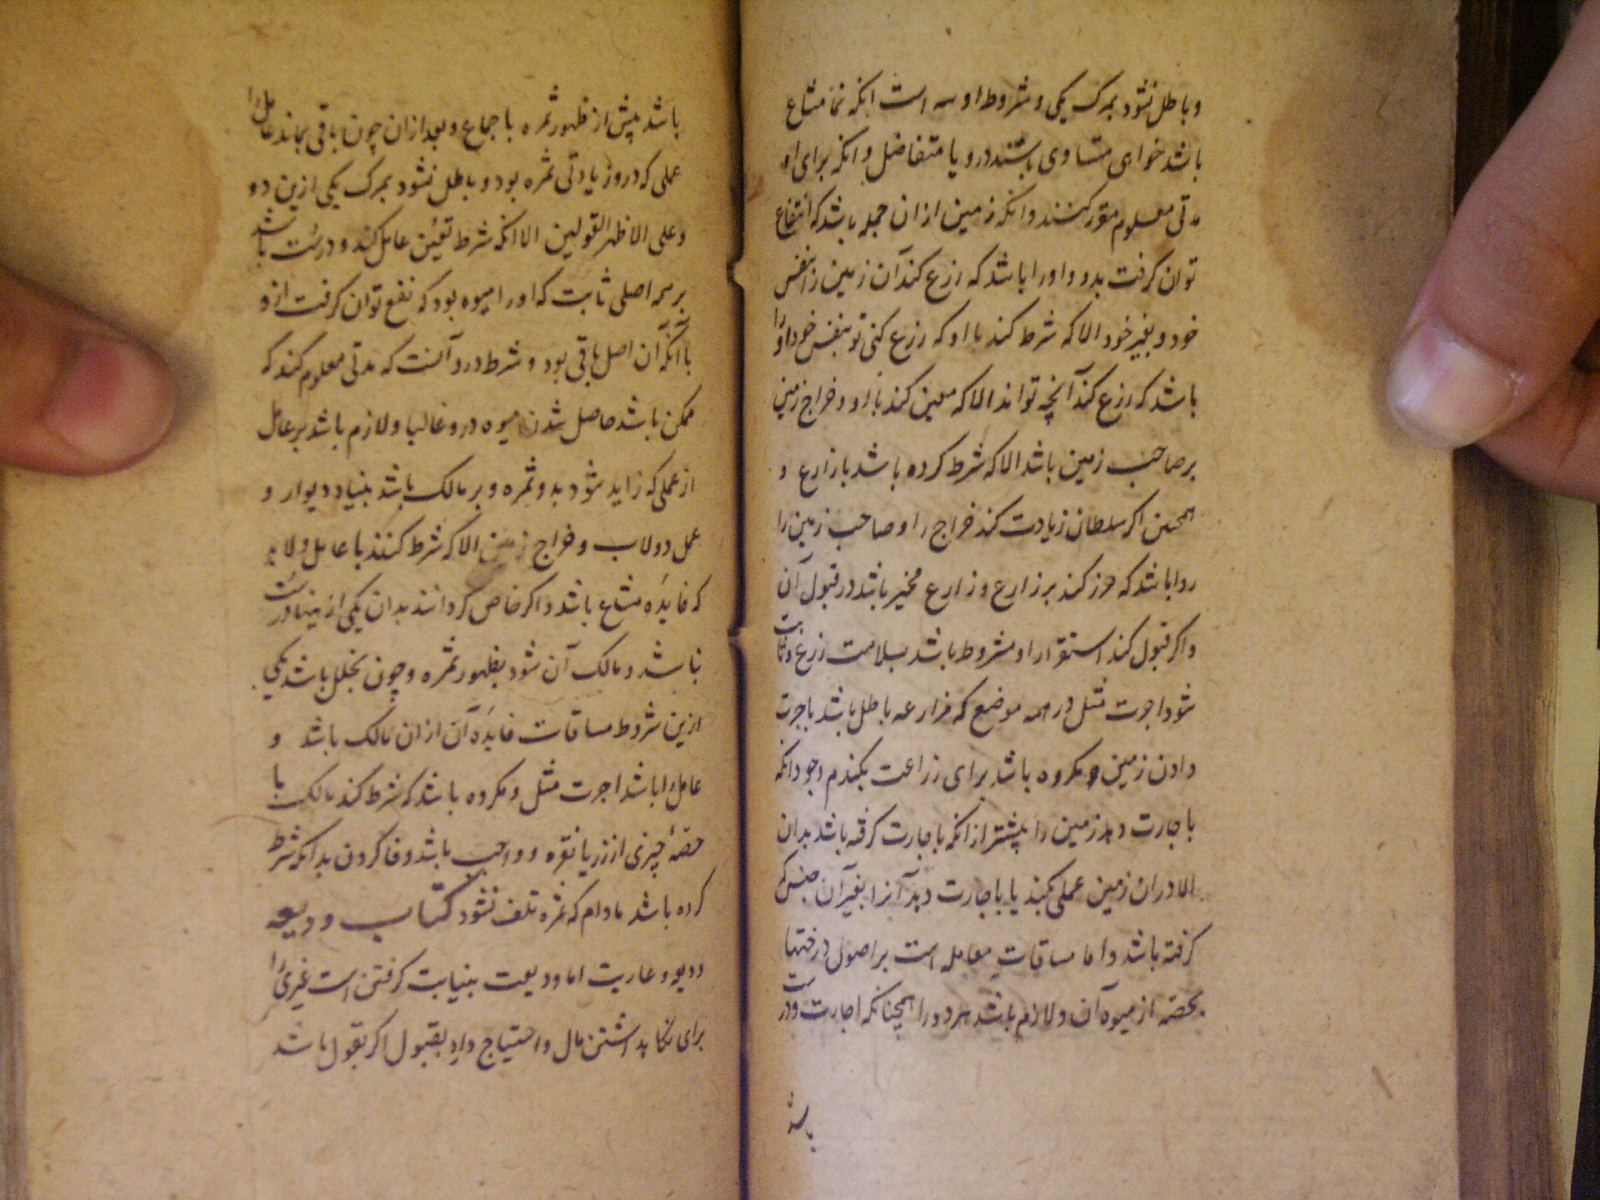 و باطل نشود بمرک یکی و شروط او سه است انکه نما مشاع
باشد خواه متساوی باشند درو یا متفاضل و انکه برای او
مدتی معلوم مقرر کنند و انکه زمین از ان جمله باشد که انتفاع
توان کرفت بدو و او را باشد که زرع کند آن زمین را بنفس
خود و بغیر خود الا که شرط کند با او که زرع کنی تو بنفس خود و او را
باشد که زرع کند آنچه تواند الا که معین کند با او و خراج زمین
بر صاحب زمین باشد الا که شرط کرده باشد با زارع و
همچنین اکر سلطان زیادت کند خراج را و صاحب زمین را
روا باشد که حرز کند بر زارع و زارع مخیر باشد در قبول آن
و اکر قبول کند استقرار او مشروط باشد بسلامت زرع و ثابت
شود اجرت مثل در همه موضع که مزارعه باطل باشد باجرت
دادن زمین و مکروه باشد برای زراعت بکندم و جو و انکه
باجارت دهد زمین را پیشتر از انکه باجارت کرفته باشد بدان
الا در ان زمین عملی بکند یا باجارت دهد آنرا بغیر آن جنس که
کرفته باشد و اما مساقات معامله است بر اصول درختها
بحصه از میوه آن و لازم باشد هر دو را همچنانکه اجارت و درست
باشد
باشد پیش از ظهور ثمره باجماع و بعد از ان چون باقی بماند عامل را
عملی که درو زیادتی ثمره بود و باطل نشود بمرک یکی ازین دو
و علی الاظهر القولین الا انکه شرط تعیین عامل کند و درست باشد
بر همه اصلی ثابت که او را میوه بود که نفع توان کرفت ازو
با آنکه آن اصل باقی بود و شرط درو آنست که مدتی معلوم کند که
ممکن باشد حاصل شدن میوه درو غالبا و لازم باشد بر عامل
از عملی که زاید شود بدو ثمره و بر مالک باشد بنیاد دیوار و
عمل دولاب و خراج زمین الا که شرط کنند با عامل و لابد
که فایده مشاع باشد و اکر خاص کردانند بدان یکی ازینها درست
نباشد و مالک آن شود بظهور ثمره و چون بخلل باشد یکی
ازین شروط مساقات فایده آن از ان مالک باشد و
عامل را باشد اجرت مثل و مکروه باشد که شرط کند مالک با
حصه چیزی از زر یا نقره و واجب باشد وفا کردن بدانکه شرط
کرده باشد مادام که ثمره تلف نشود کتاب ودیعه
ودیعه و عاریت اما ودیعت بنیابت کرفتن است غیری را
برای نکاه داشتن مال و احتیاج دارد بقبول اکر بقول باشد